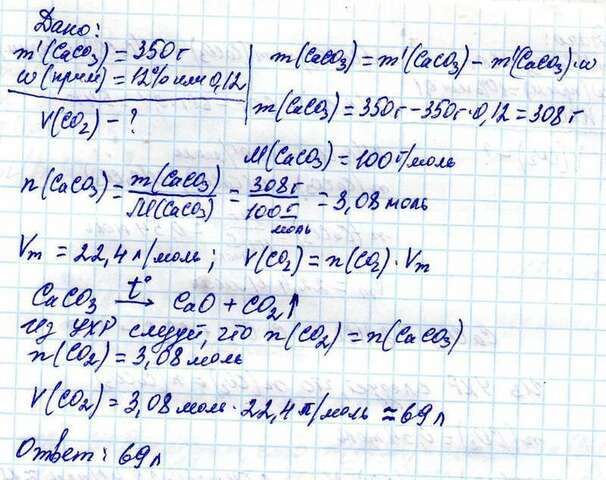 Дано:
m'(CaCO₃) = 350 г
ω(прим) = 12% или 0,12
V(CO₂) – ?
m(CaCO₃) = m'(CaCO₃) – m'(CaCO₃)·ω
m(CaCO₃) = 350 г – 350 г · 0,12 = 308 г
M(CaCO₃) = 100 г/моль
n(CaCO₃) = m(CaCO₃)/M(CaCO₃) = 308 г/100 г/моль = 3,08 моль
Vm = 22,4 л/моль; V(CO₂) = n(CO₂)·Vm
CaCO₃ t°→ CaO + CO₂↑
Из УХР следует, что n(CO₂) = n(CaCO₃)
n(CO₂) = 3,08 моль
V(CO₂) = 3,08 моль · 22,4 л/моль ≈ 69 л
Ответ: 69 л